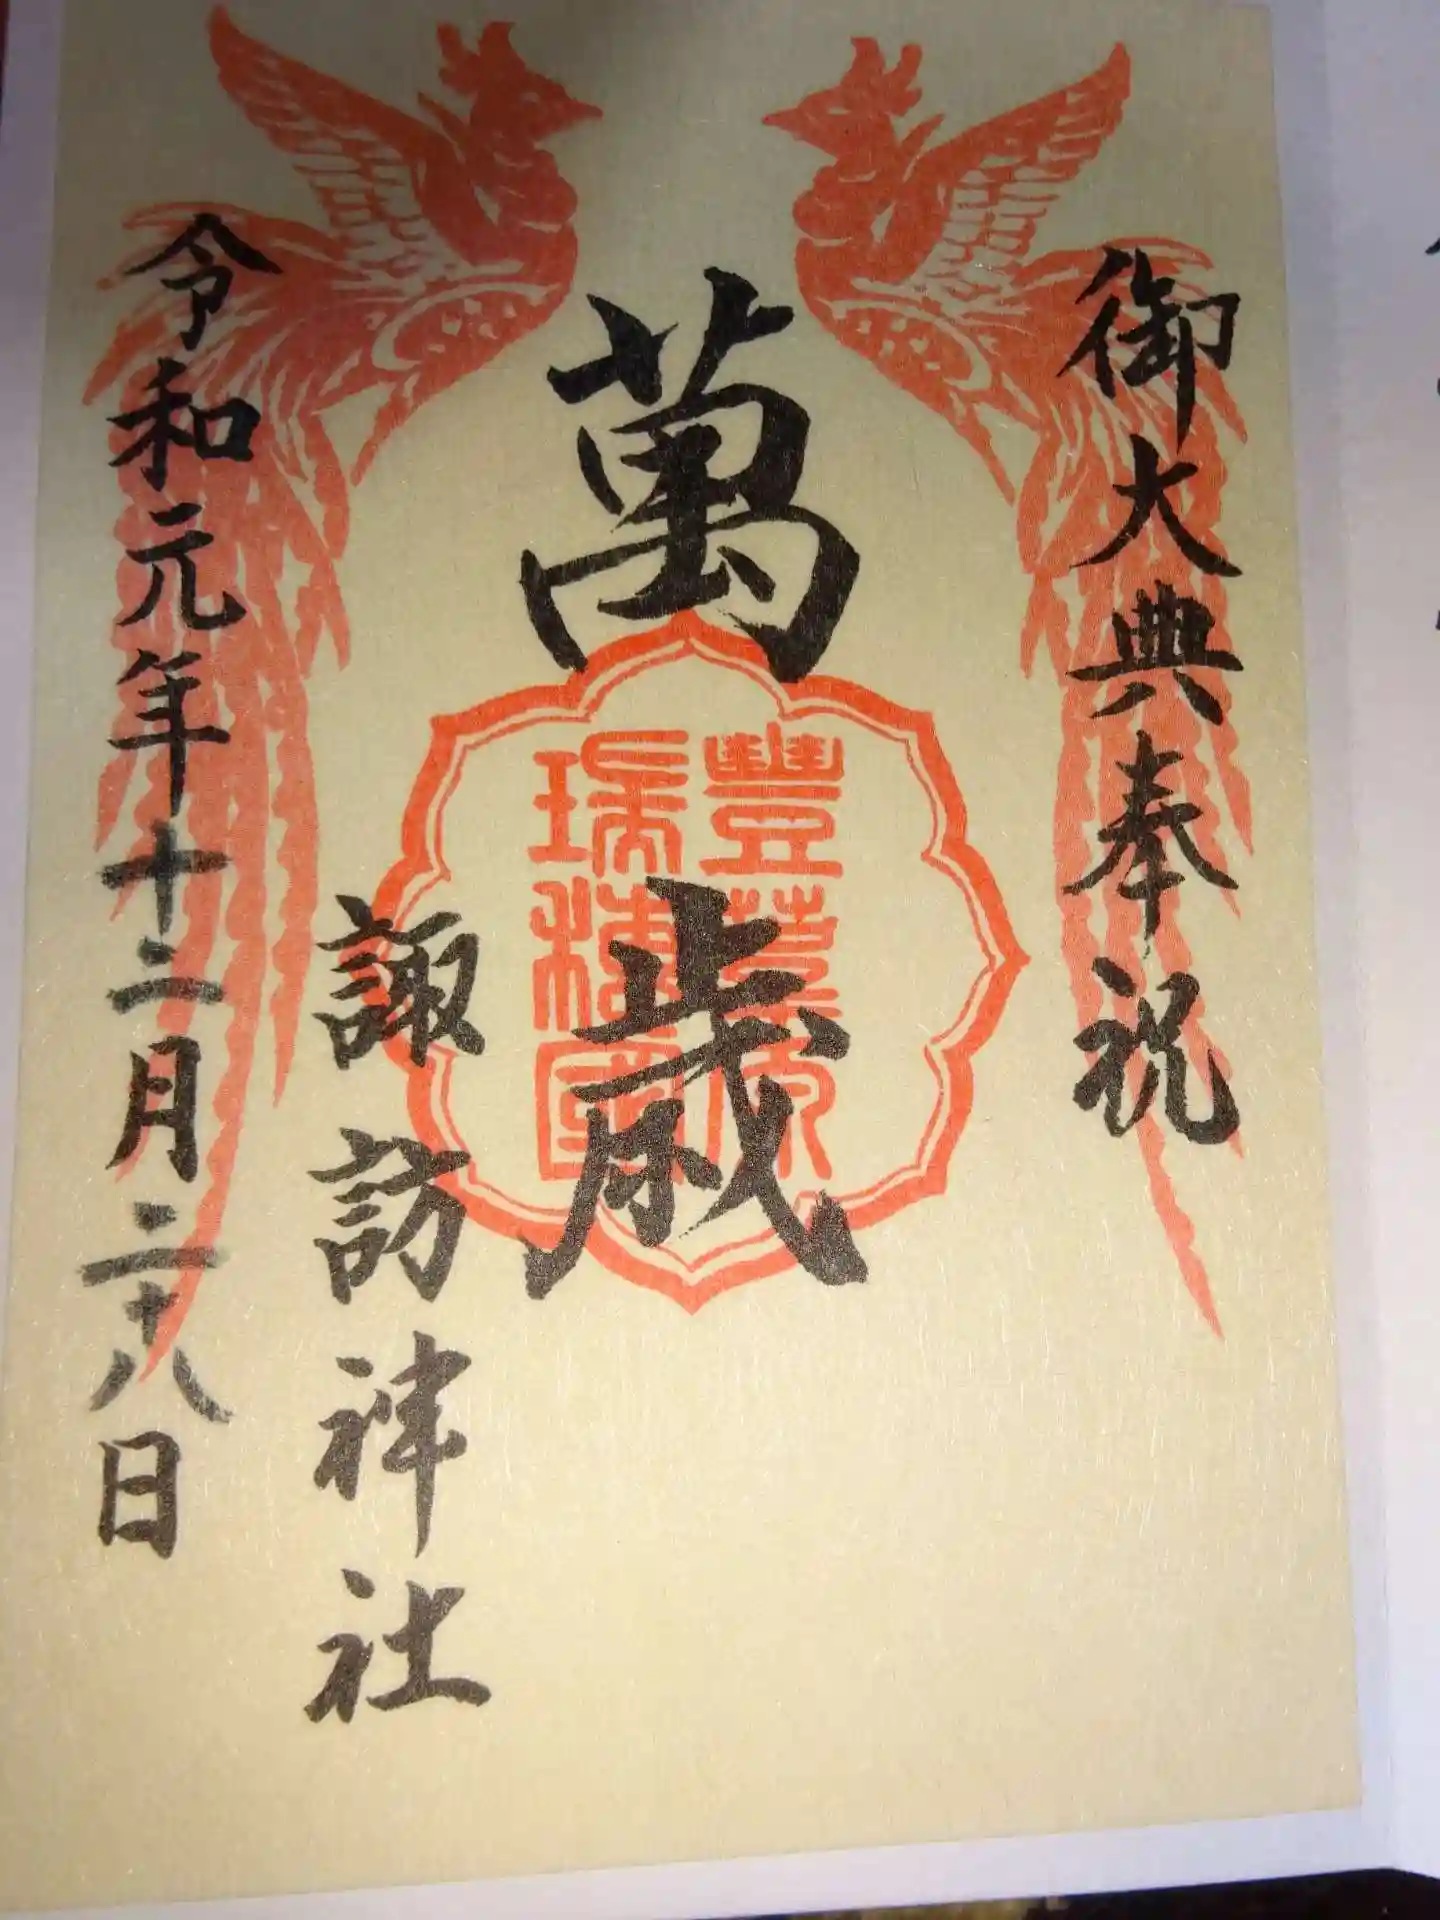 御大典奉祝
萬歳
豊葦原
瑞穂国
諏訪神社
令和元年十二月二十八日